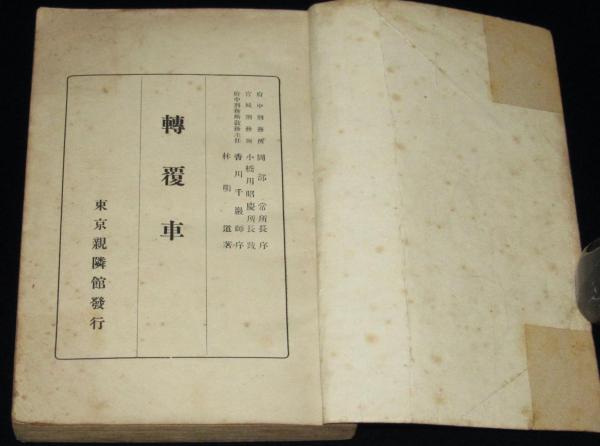 府中刑務所 岡部 常所長 序
宮城刑務所 小橋川昭慶所長 跋
府中刑務所敎務主任 香川千巖師 序
林明道著
轉覆車
東京親隣館發行